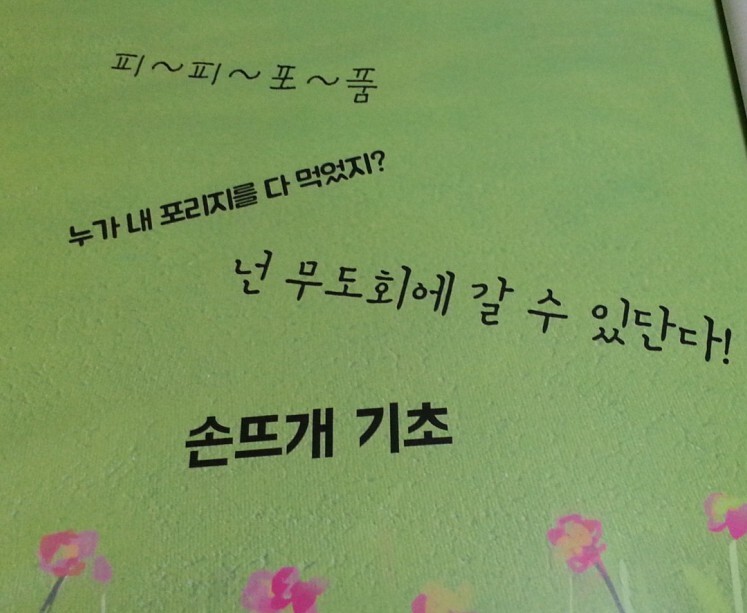 피~피~포~품
누가 내 포리지를 다 먹었지?
넌 무도회에 갈 수 있단다!
손뜨개 기초